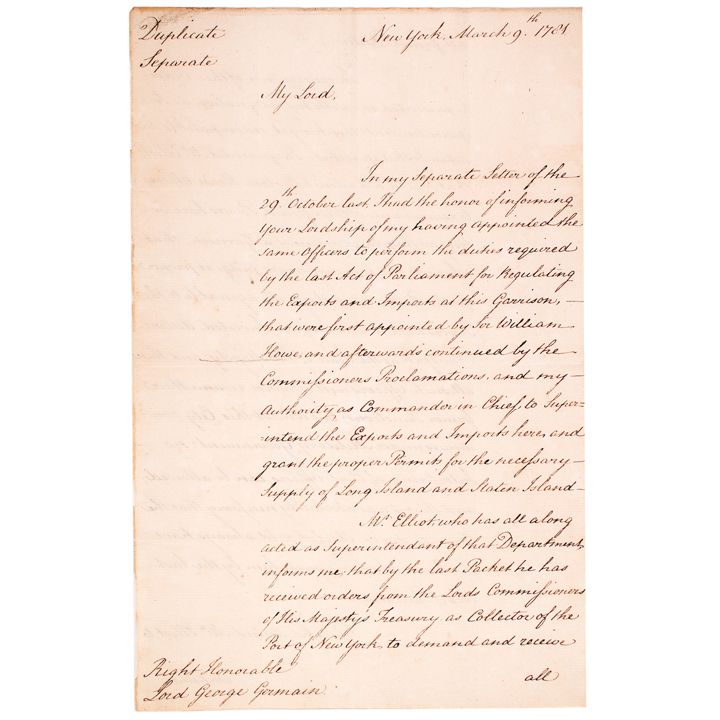 Duplicate
Separate
New York. March 9.th 1781
My Lord.
In my Separate Letter of the
29.th October last, I had the honor of informing
Your Lordship of my having appointed the
same Officers to perform the duties required
by the last Act of Parliament for Regulating
the Exports and Imports at this Garrison, —
that were first appointed by Sir William
Howe, and afterwards continued by the
Commissioners Proclamations, and my —
Authority, as Commander in Chief, to Super-
-intend the Exports and Imports here, and
grant the proper Permits for the necessary —
Supply of Long Island and Staten Island —
Mr. Elliot, who has all along
acted as Superintendant of that Department,
informs me, that by the last Packet he has
received orders from the Lords Commissioners
of His Majesty's Treasury, as Collector of the
Port of New York, to demand and receive
all
Right Honorable
Lord George Germain.